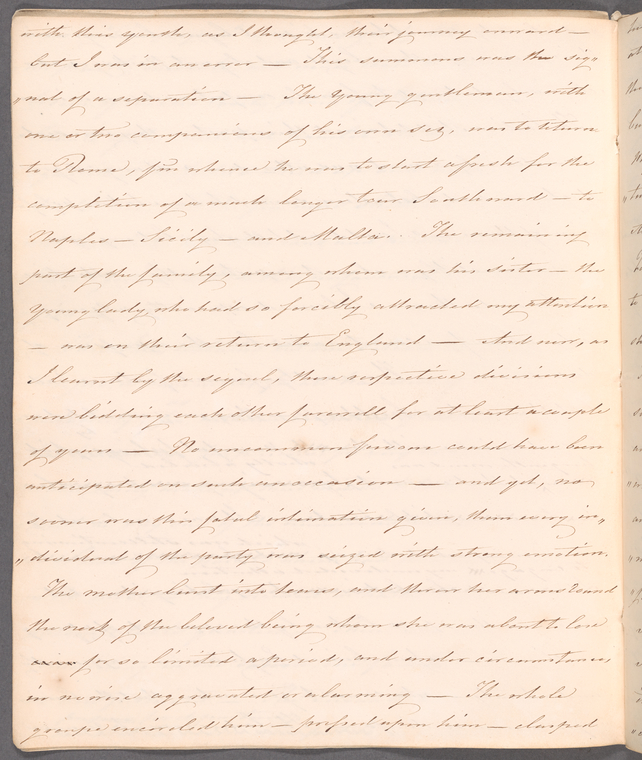 with this youth, as I thought, their journey onward —
but I was in an error — This summons was the sig„
„nal of a separation — The young gentleman, with
one or two companions of his own sex, was to return
to Rome, from whence he was to start afresh for the
completion of a much longer tour Southward — to
Naples — Sicily — and Malta. The remaining
part of the family, among whom was his sister — the
young lady, who had so forcibly attracted my attention
— was on their return to England — And now, as
I learnt by the sequel, these respective divisions
were bidding each other farewell for at least a couple
of years — No uncommon fervour could have been
anticipated on such an occasion — and yet, no
sooner was this fatal intimation given, than every in„
„dividual of the party was seized with strong emotion.
The mother burst into tears, and threw her arms round
the neck of the beloved being whom she was about to lose
for so limited a period, and under circumstances
in no wise aggravated or alarming — The whole
groupe encircled him — pressed upon him — clasped